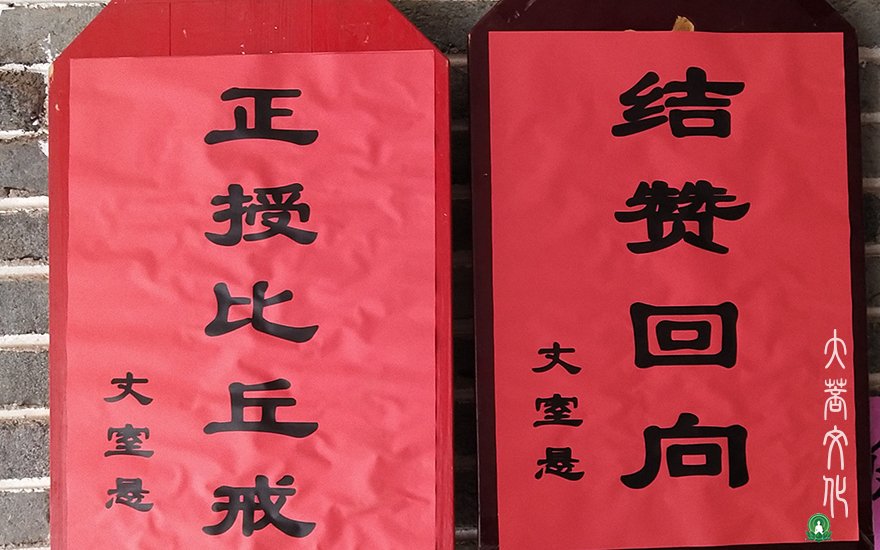 正授比丘戒
丈室悬
结赞回向
丈室悬
大菩文化